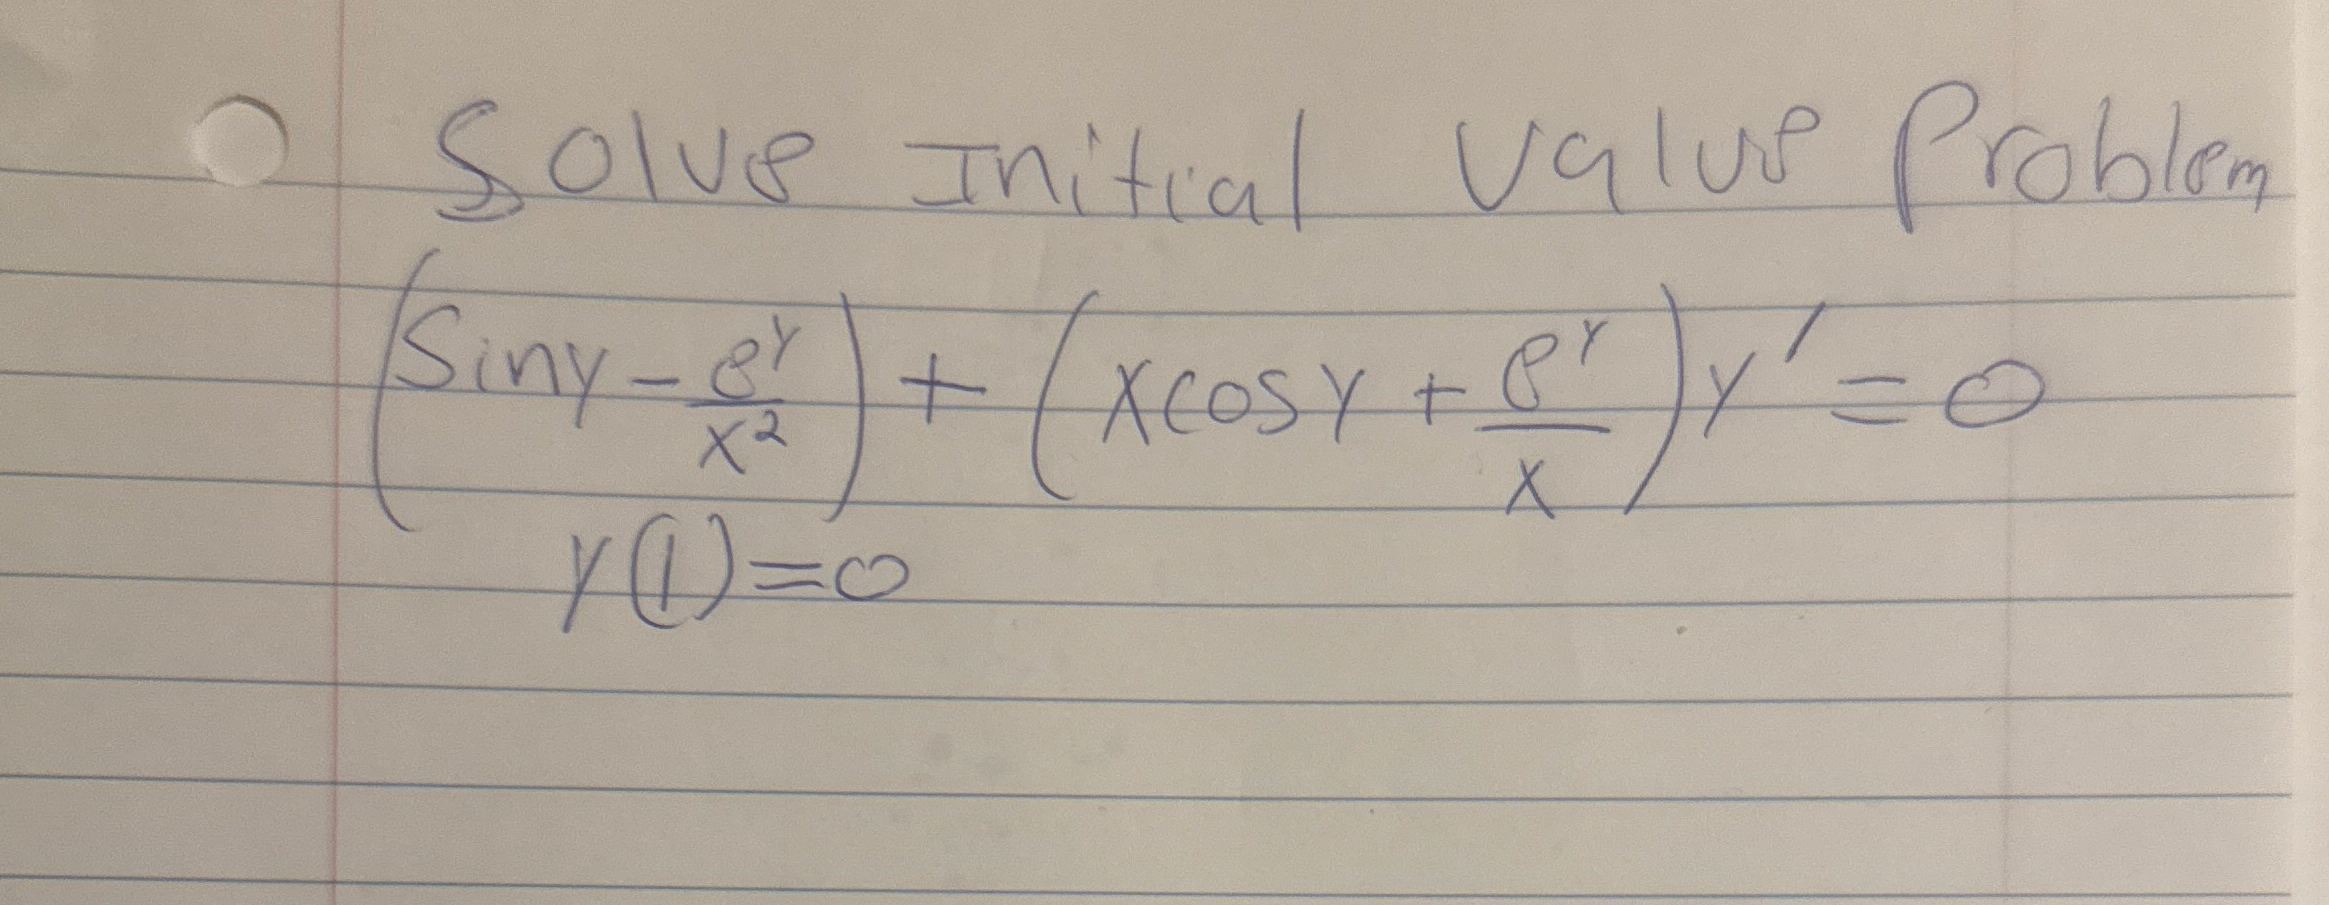 Solve Initial Value Problem
(Siny - e^y/x^2) + (xcosy + e^y/x)y' = 0
y(1)=0